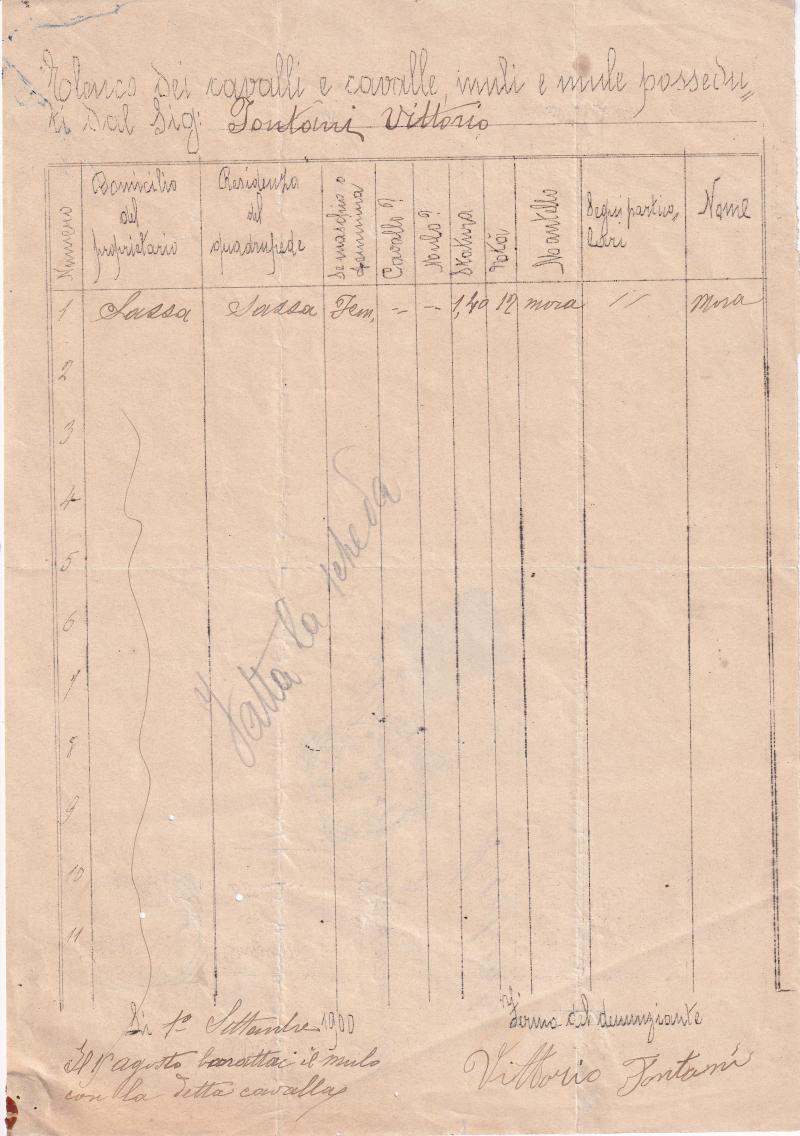 Elenco dei cavalli e cavalle, muli e mule possedu„
ti dal Sig: Fontani Vittorio
Numero
Domicilio del proprietario
Residenza del quadrupede
Se maschio o femmina
Cavallo?
Mulo?
Statura
Età
Mantello
Segni partico„lari
Nome
1 Sassa Sassa Fem, = – 1,40 12 mora // Mora
2
3
4
5
6
7
8
9
10
11
Fatta la scheda
Li 1º Settembre 1900
Firma del denunziante
Il agosto barattai il mulo
con la detta cavalla
Vittorio Fontani